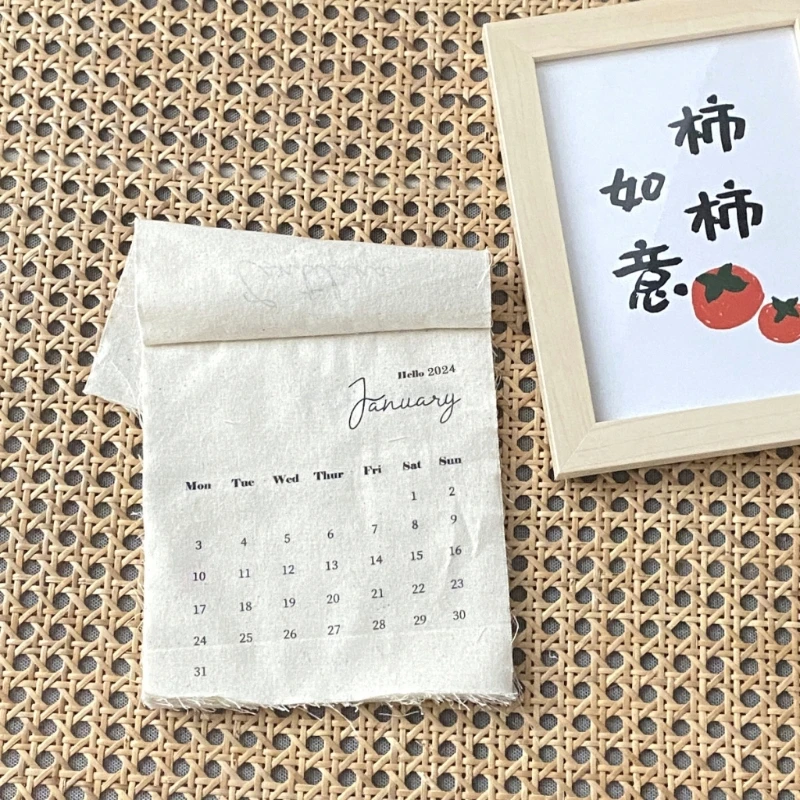 Hello 2024
January
Mon Tue Wed Thur Fri Sat Sun
1 2
3 4 5 6 7 8 9
10 11 12 13 14 15 16
17 18 19 20 21 22 23
24 25 26 27 28 29 30
31
柿柿
如意